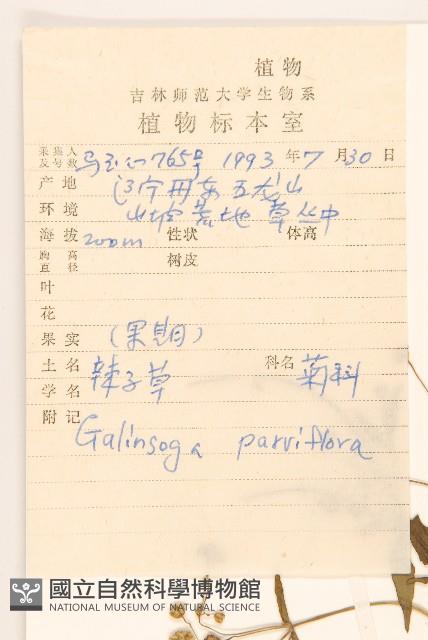 植物
吉林师范大学生物系
植物标本室
采集人及号数 765号 1993年7月30日
产地 辽宁丹东五龙山
环境 山坡荒地草丛中
海拔 200m 性状 体高
胸高直径 树皮
叶
花
果实 (果期)
土名 辣子草 科名 菊科
学名
附记 Galinsoga parviflora
國立自然科學博物館
NATIONAL MUSEUM OF NATURAL SCIENCE